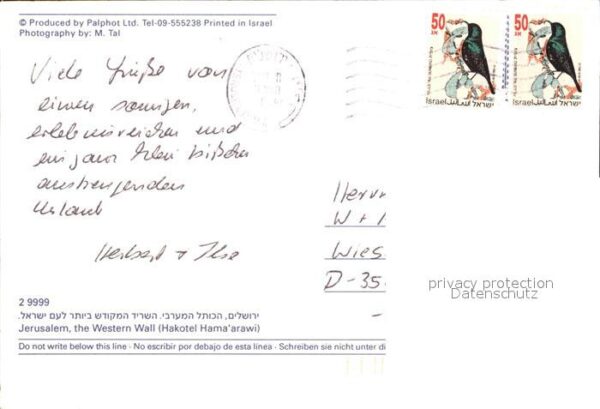 © Produced by Palphot Ltd. Tel-09-555238 Printed in Israel
Photography by: M. Tal
50
50
Israel ישראל
Israel ישראל
Viele Grüße von
einem sonnigen,
erlebnisreichen und
ein ganz klein bißchen
anstrengenden
Urlaub
Herbert + Ilse
Herrn
W +
Wies
D-35
privacy protection
Datenschutz
2 9999
ירושלים, הכותל המערבי. השריד המקודש ביותר לעם ישראל.
Jerusalem, the Western Wall (Hakotel Hama'arawi)
Do not write below this line - No escribir por debajo de esta linea - Schreiben sie nicht unter di